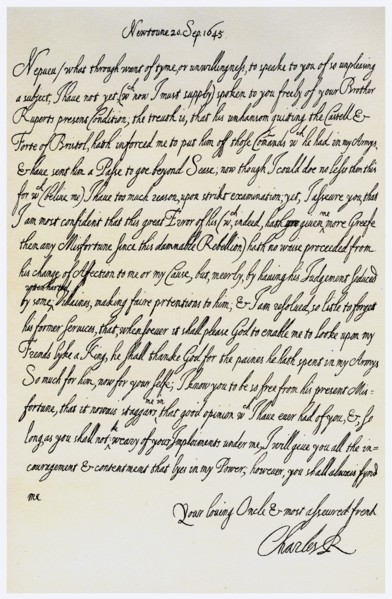 Newtoune 20. Sep. 1645.
Nepueu/ what through wans of tyme, or unwillingness, to speake to you of so unpleasing
a subject, I have not yet, (wch now I must supply) spoken to you freely of your Brother
Ruperts present Condition; the treuth is, that his unhansom quiting the Castell &
Forte of Bristol, hath inforced me to put him off those Comands wch he had in my Armys
& have sent him a Passe to goe beyond Seas; now though I could doe no lesse then this
for wch (beliue me) I have too much reason, upon strikt examination; yet, I asseure you, that
I am most confident that this great Error of his (wch, indeed, hath given me more Greefe
then any Misfortune since this damnable Rebellion) hath no waise proceeded from
his change of Affection to me or my Cause, but, meerly, by having his Judgement seduced
by some Villaines, making faire pretensions to him; & I am resolued, so litle to forget
his former Services, that, whensoever it shall please God to enable me to looke upon my
Frends lyke a King, he shall thanke God for the paines he hath spent in my Armys
So much for him, now for your selfe; I know you to be so free from his present Mis-
fortune, that it nowais staggers me in that good opinion wch I have ever had of you, &, so
long as you shall not be weary of your Imployments under me, I will give you all the in-
couragement & contentment that lyes in my Power, however, you shall alwais fynd
me
Your loving Oncle & most asseured frend
Charles R